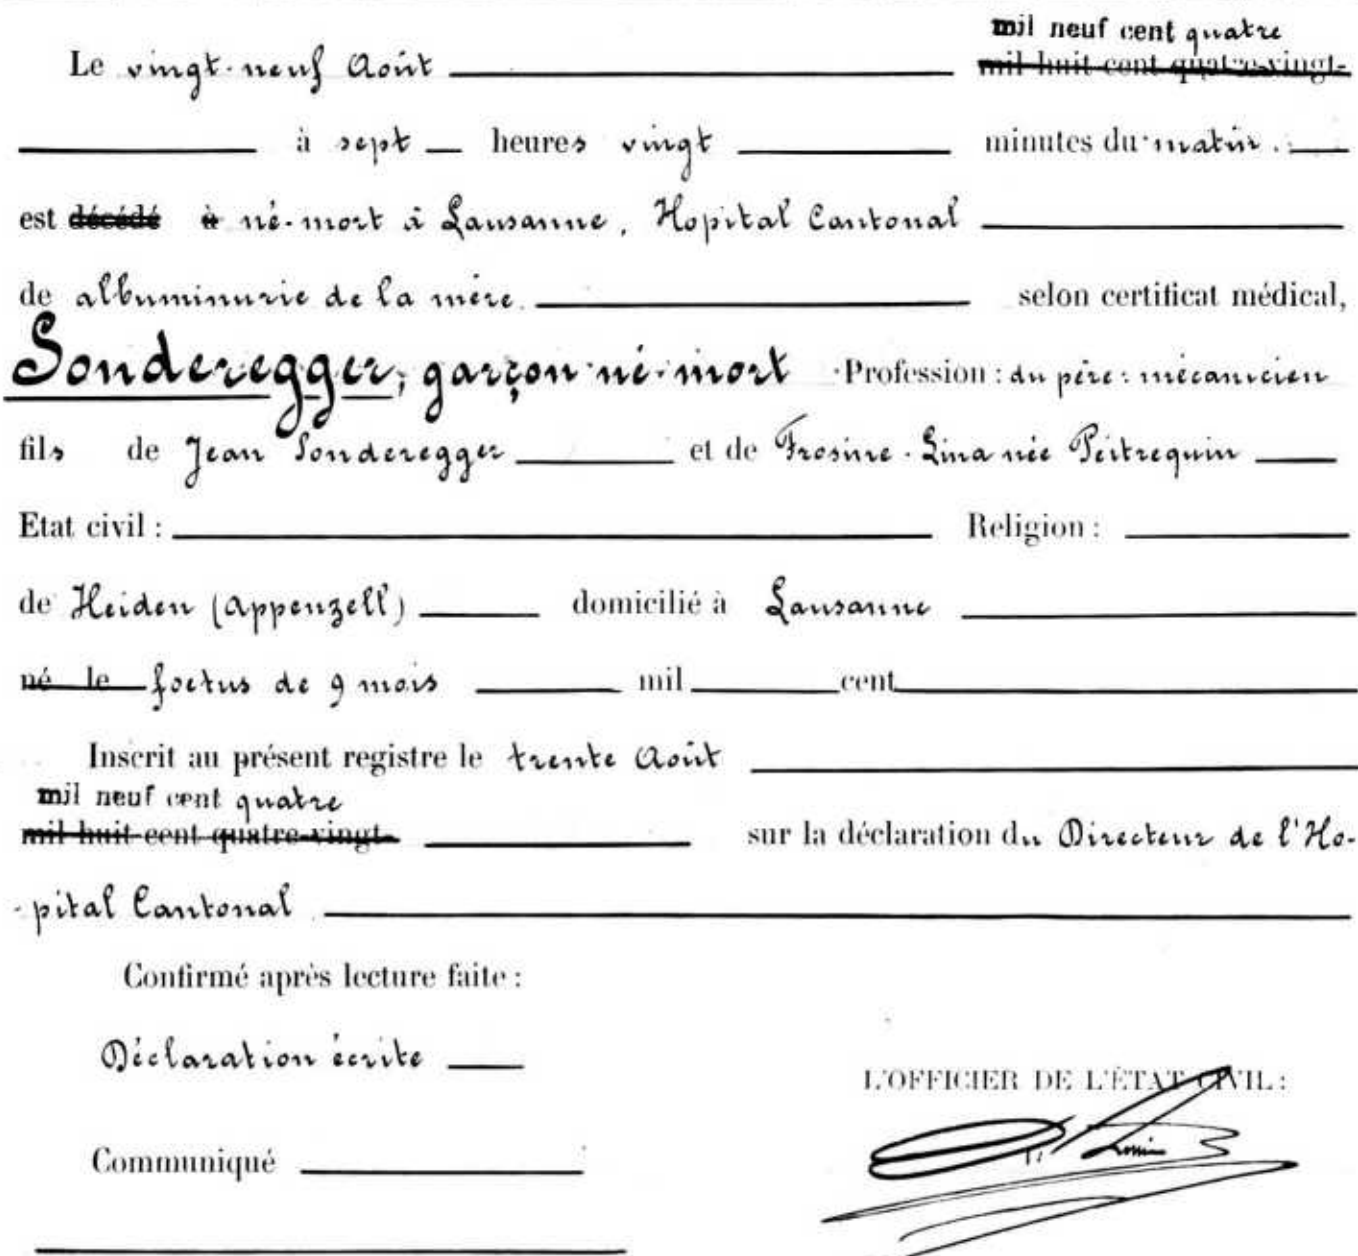 mil neuf cent quatre
Le vingt-neuf Août mil huit cent quatre-vingt-
à sept heures vingt minutes du matin.
est décédé à né-mort à Lausanne, Hopital Cantonal
de albuminurie de la mère. selon certificat médical,
Sonderegger, garçon né-mort Profession : du père : mécanicien
fils de Jean Sonderegger et de Frosine-Lina née Peitrequin
Etat civil : Religion :
de Heiden (Appenzell) domicilié à Lausanne
né le foetus de 9 mois mil cent
Inscrit au présent registre le trente Août
mil neuf cent quatre
mil huit cent quatre-vingt- sur la déclaration du Directeur de l'Ho-
-pital Cantonal
Confirmé après lecture faite :
Déclaration écrite
L'OFFICIER DE L'ÉTAT CIVIL :
Communiqué